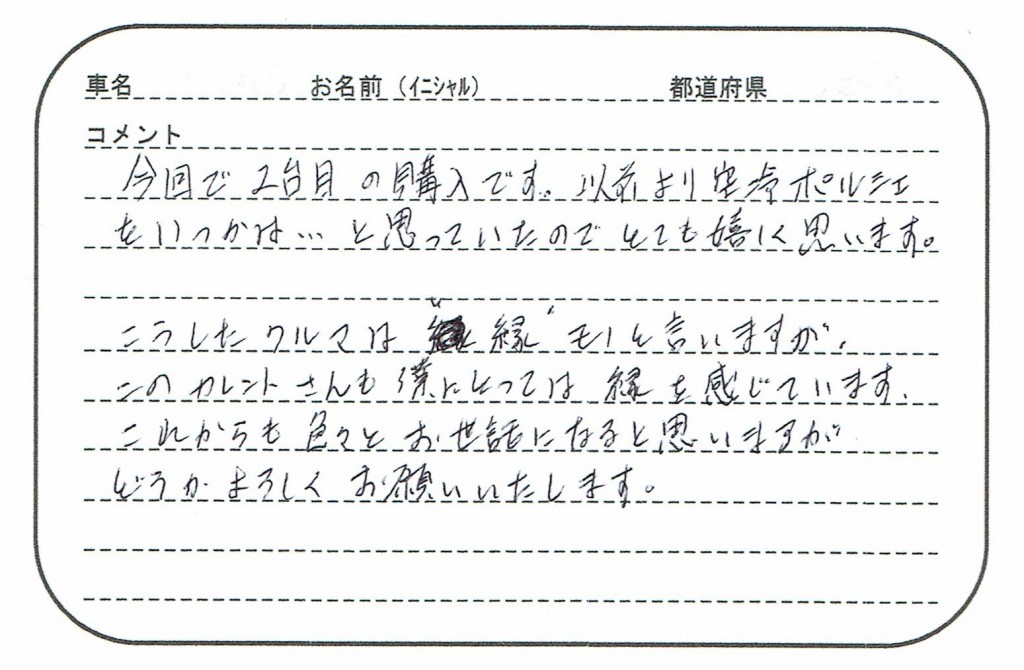 車名 お名前（ｲﾆｼｬﾙ） 都道府県
コメント
今回で2台目の購入です。以前より空冷ポルシェ
をいつかは…と思っていたのでとても嬉しく思います。
こうしたクルマは“縁”モノと言いますが、
このカレントさんも僕にとっては縁を感じています、
これからも色々とお世話になると思いますが
どうかよろしくお願いいたします。